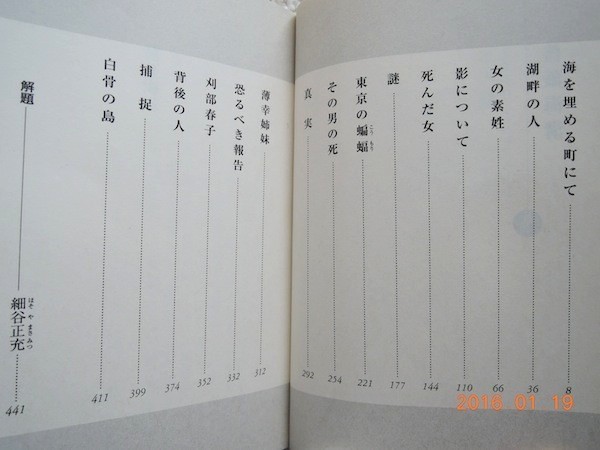 海を埋める町にて 8
湖畔の人 36
女の素姓 66
影について 110
死んだ女 144
謎 177
東京の蝙蝠 こうもり 221
その男の死 254
真実 292
薄幸姉妹 312
恐るべき報告 332
刈部春子 352
背後の人 374
捕捉 399
白骨の島 411
解題 細谷正充 ほそやまさみつ 441
2016.01.19